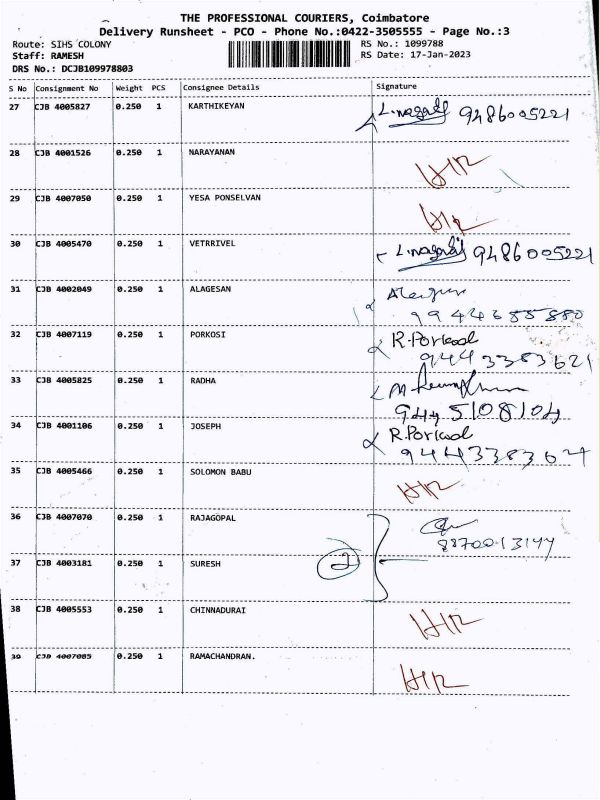 THE PROFESSIONAL COURIERS, Coimbatore
Delivery Runsheet - PCO - Phone No.:0422-3505555 - Page No.:3
Route: SIHS COLONY RS No.: 1099788
Staff: RAMESH RS Date: 17-Jan-2023
DRS No.: DCJB109978803
S No Consignment No Weight PCS Consignee Details Signature
27 CJB 4005827 0.250 1 KARTHIKEYAN 9486005221
28 CJB 4001526 0.250 1 NARAYANAN
29 CJB 4007050 0.250 1 YESA PONSELVAN
30 CJB 4005470 0.250 1 VETRRIVEL 9486005221
31 CJB 4002049 0.250 1 ALAGESAN
32 CJB 4007119 0.250 1 PORKOSI R.Porkodi
9443383621
33 CJB 4005825 0.250 1 RADHA
34 CJB 4001106 0.250 1 JOSEPH R.Porkodi
35 CJB 4005466 0.250 1 SOLOMON BABU
36 CJB 4007070 0.250 1 RAJAGOPAL
37 CJB 4003181 0.250 1 SURESH 2
38 CJB 4005553 0.250 1 CHINNADURAI
39 CJB 4007085 0.250 1 RAMACHANDRAN.